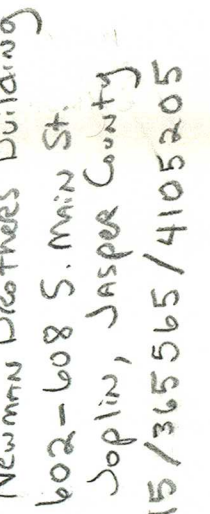 Newman Brothers Building
602-608 S. Main St.
Joplin, Jasper County
15/365565/4105205